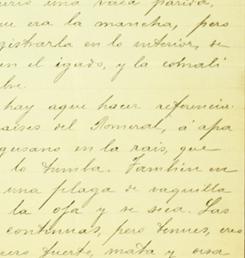 urrio una vaca parida,
ue era la mancha, pero
gistrarla en lo interior, se
en el igado, y la
hay aque hacer referencia
aises del Romeral, á apa
gusano en la rais, que
lo tumba. Tambien en
una plaga de vaquilla
la oja y se seca. Las
continuas, pero tenues, cres
fuerte, mata y